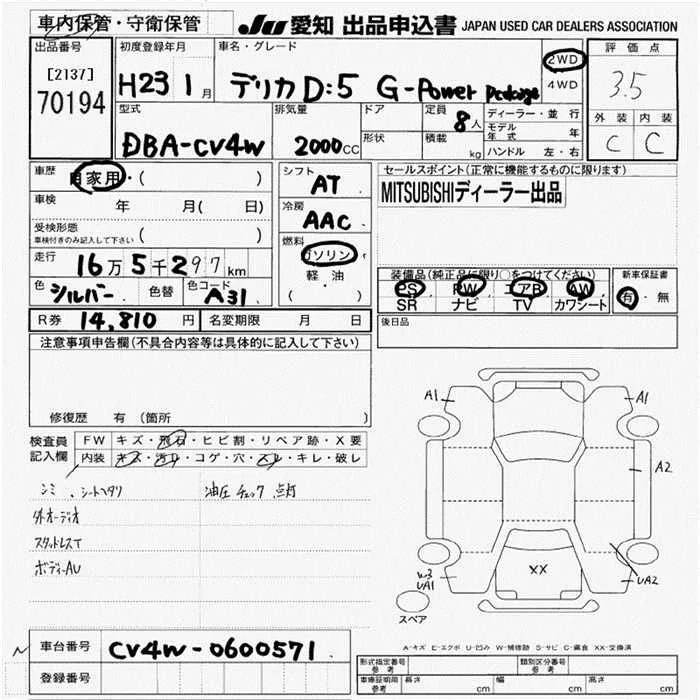 車内保管・守衛保管
JU 愛知 出品申込書 JAPAN USED CAR DEALERS ASSOCIATION
出品番号 初度登録年月 車名・グレード 評価点
[2137] H23 1月 デリカD:5 G-Power Package 2WD 4WD 3.5
70194
型式 排気量 ドア 定員 8人 ディーラー・並行 外装 内装
DBA-CV4W 2000CC 形状 積載 kg モデル年式 年 C C
ハンドル 左・右
車歴 自家用・( ) シフト AT セールスポイント(正常に機能するものに限ります)
車検 年 月( 日) 冷房 AAC MITSUBISHIディーラー出品
受検形態 車検付きのみ記入して下さい ( )
燃料 ガソリン 軽・油 ( )
走行 16万5千297km
装備品(純正品に限り○をつけてください) 新車保証書
色 シルバー 色替 色コード A31 PS PW エアB AW 有・無
SR ナビ TV カワシート
R券 14,810円 名変期限 月 日 後日品
注意事項申告欄(不具合内容等は具体的に記入して下さい)
修復歴 有(箇所 )
検査員記入欄 FW キズ・飛石・ヒビ割・リペア跡・X要
内装 キズ・汚れ・コゲ・穴・スレ・キレ・破レ
シミ、シートヘタリ 油圧チェック点灯
外オーディオ
スタッドレスT
ボディーAU
A1 A1
A2
XX
W3
UA1 UA2
スペア
A-キズ E-エクボ U-凹み W-補修跡 S-サビ C-腐食 XX-交換済
車台番号 CV4W-0600571
登録番号
形式指定番号 参考 類別区分番号 参考
車庫証明用 参考 長さ cm 幅 cm 高さ cm